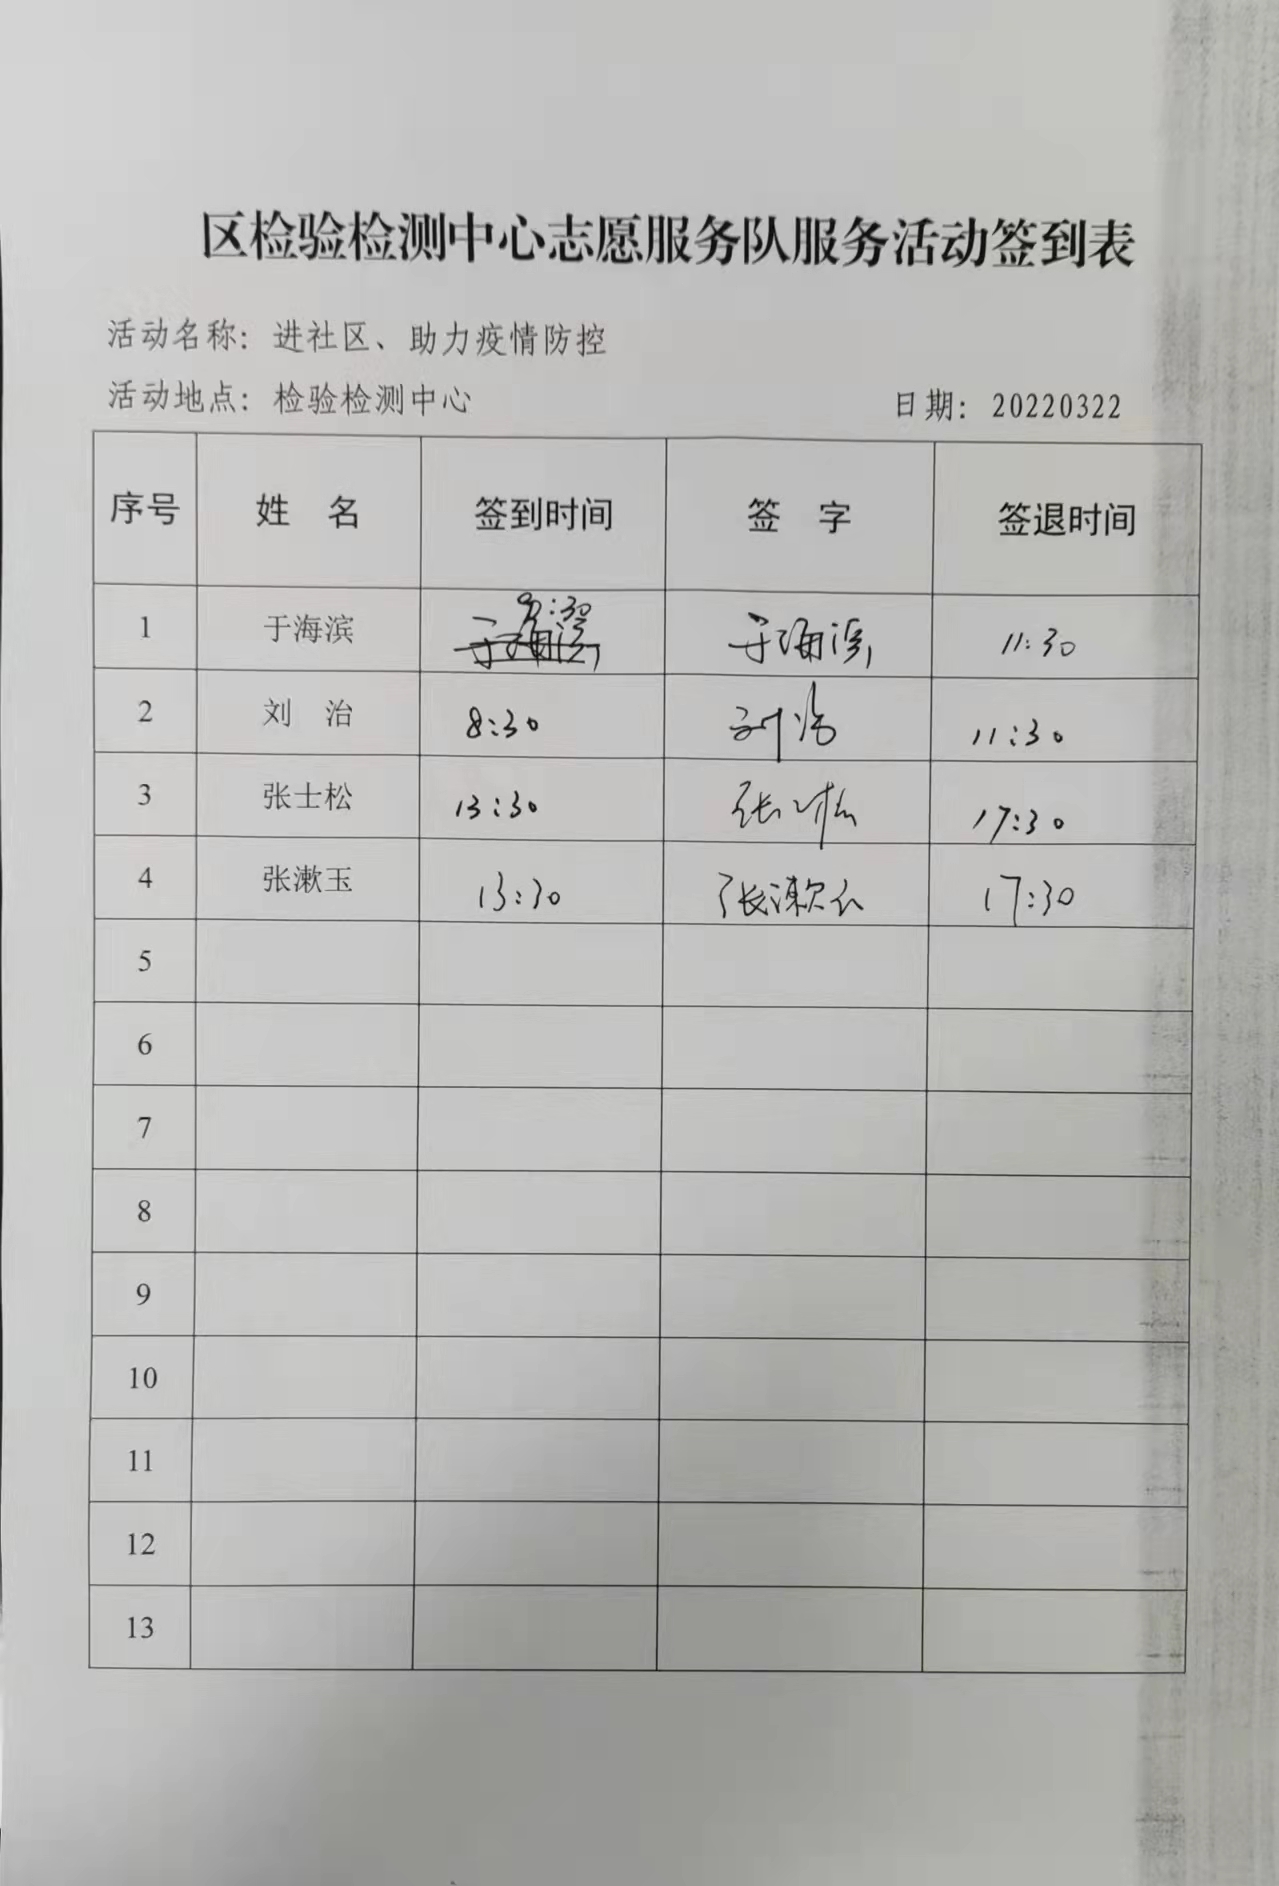 区检验检测中心志愿服务队服务活动签到表
活动名称：进社区、助力疫情防控
活动地点：检验检测中心 日期：20220322
序号 姓 名 签到时间 签 字 签退时间
1 于海滨 8:30 于海滨 11:30
2 刘 治 8:30 刘治 11:30
3 张士松 13:30 张士松 17:30
4 张漱玉 13:30 张漱玉 17:30
5
6
7
8
9
10
11
12
13